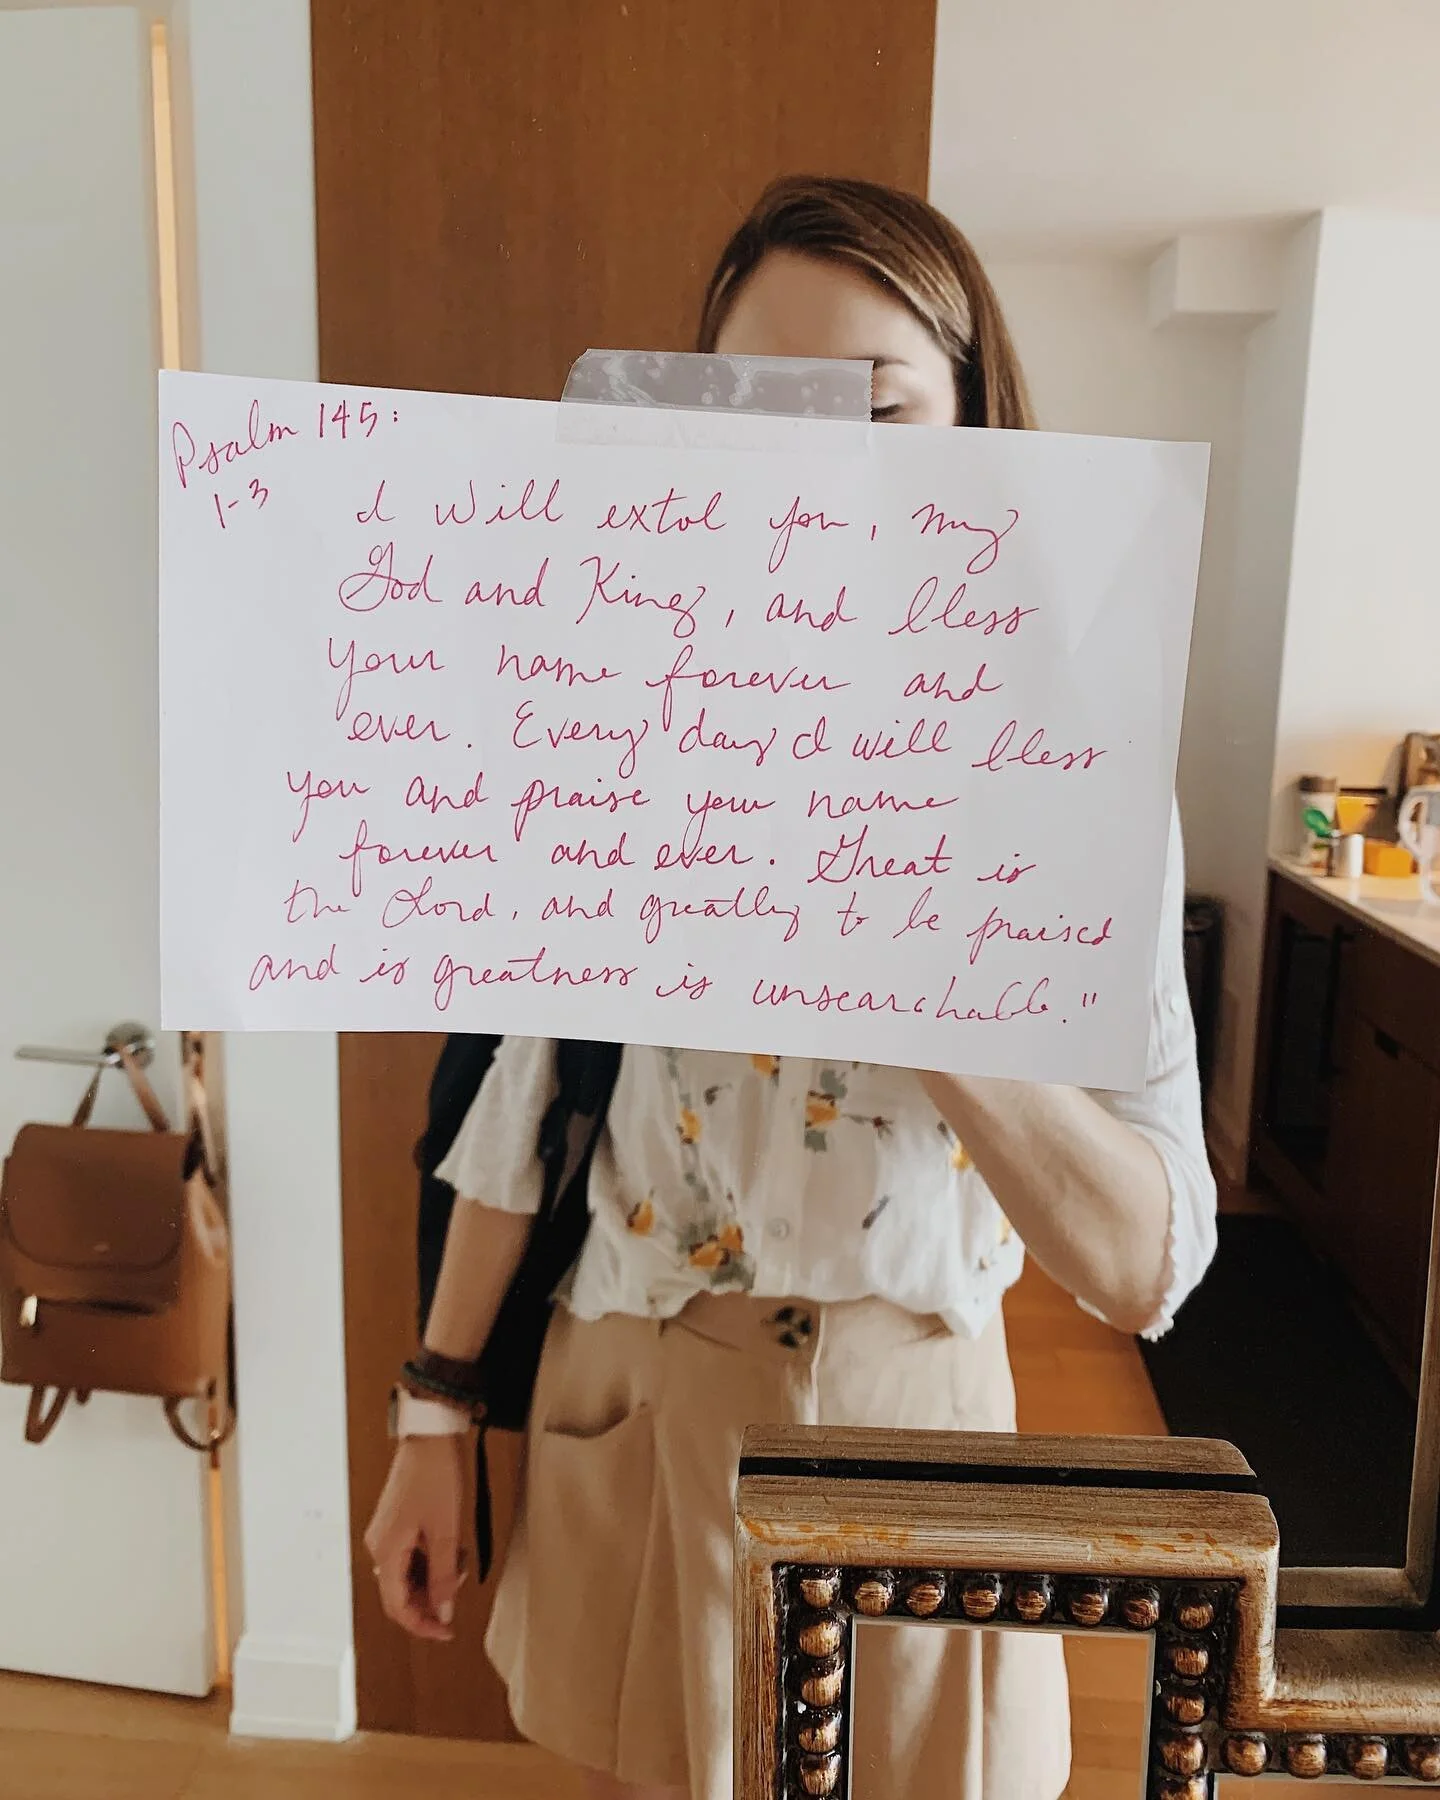 Psalm 145:
1-3
I will extol you, my
God and King, and bless
your name forever and
ever. Every day I will bless
you and praise your name
forever and ever. Great is
the Lord, and greatly to be praised
and is greatness is unsearchable."